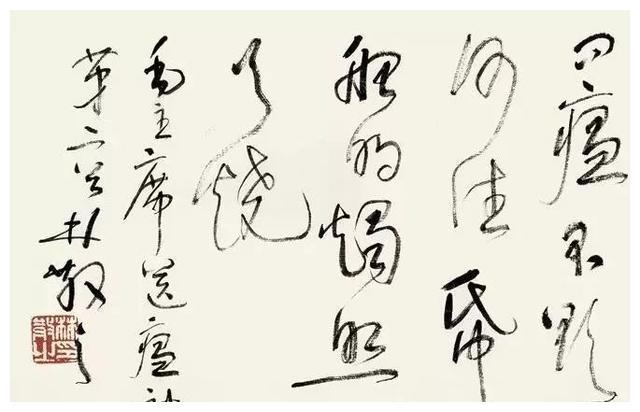 问瘟君欲
何往帋
船明燭照
天烧
毛主席送瘟神
第二首 林散之